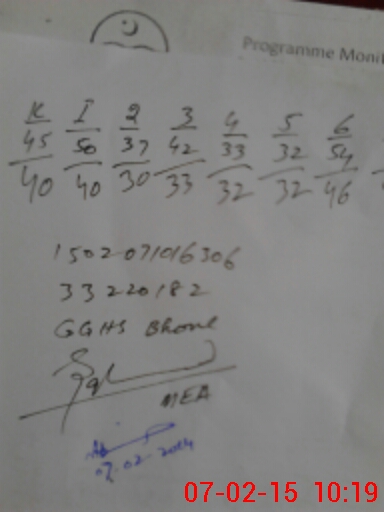 Programme Monit
K I 2 3 4 5 6
45 50 37 42 33 32 54
40 40 30 33 32 32 46
1502071016306
33220182
GGHS Bhone
MEA
07-02-2014
07-02-15 10:19